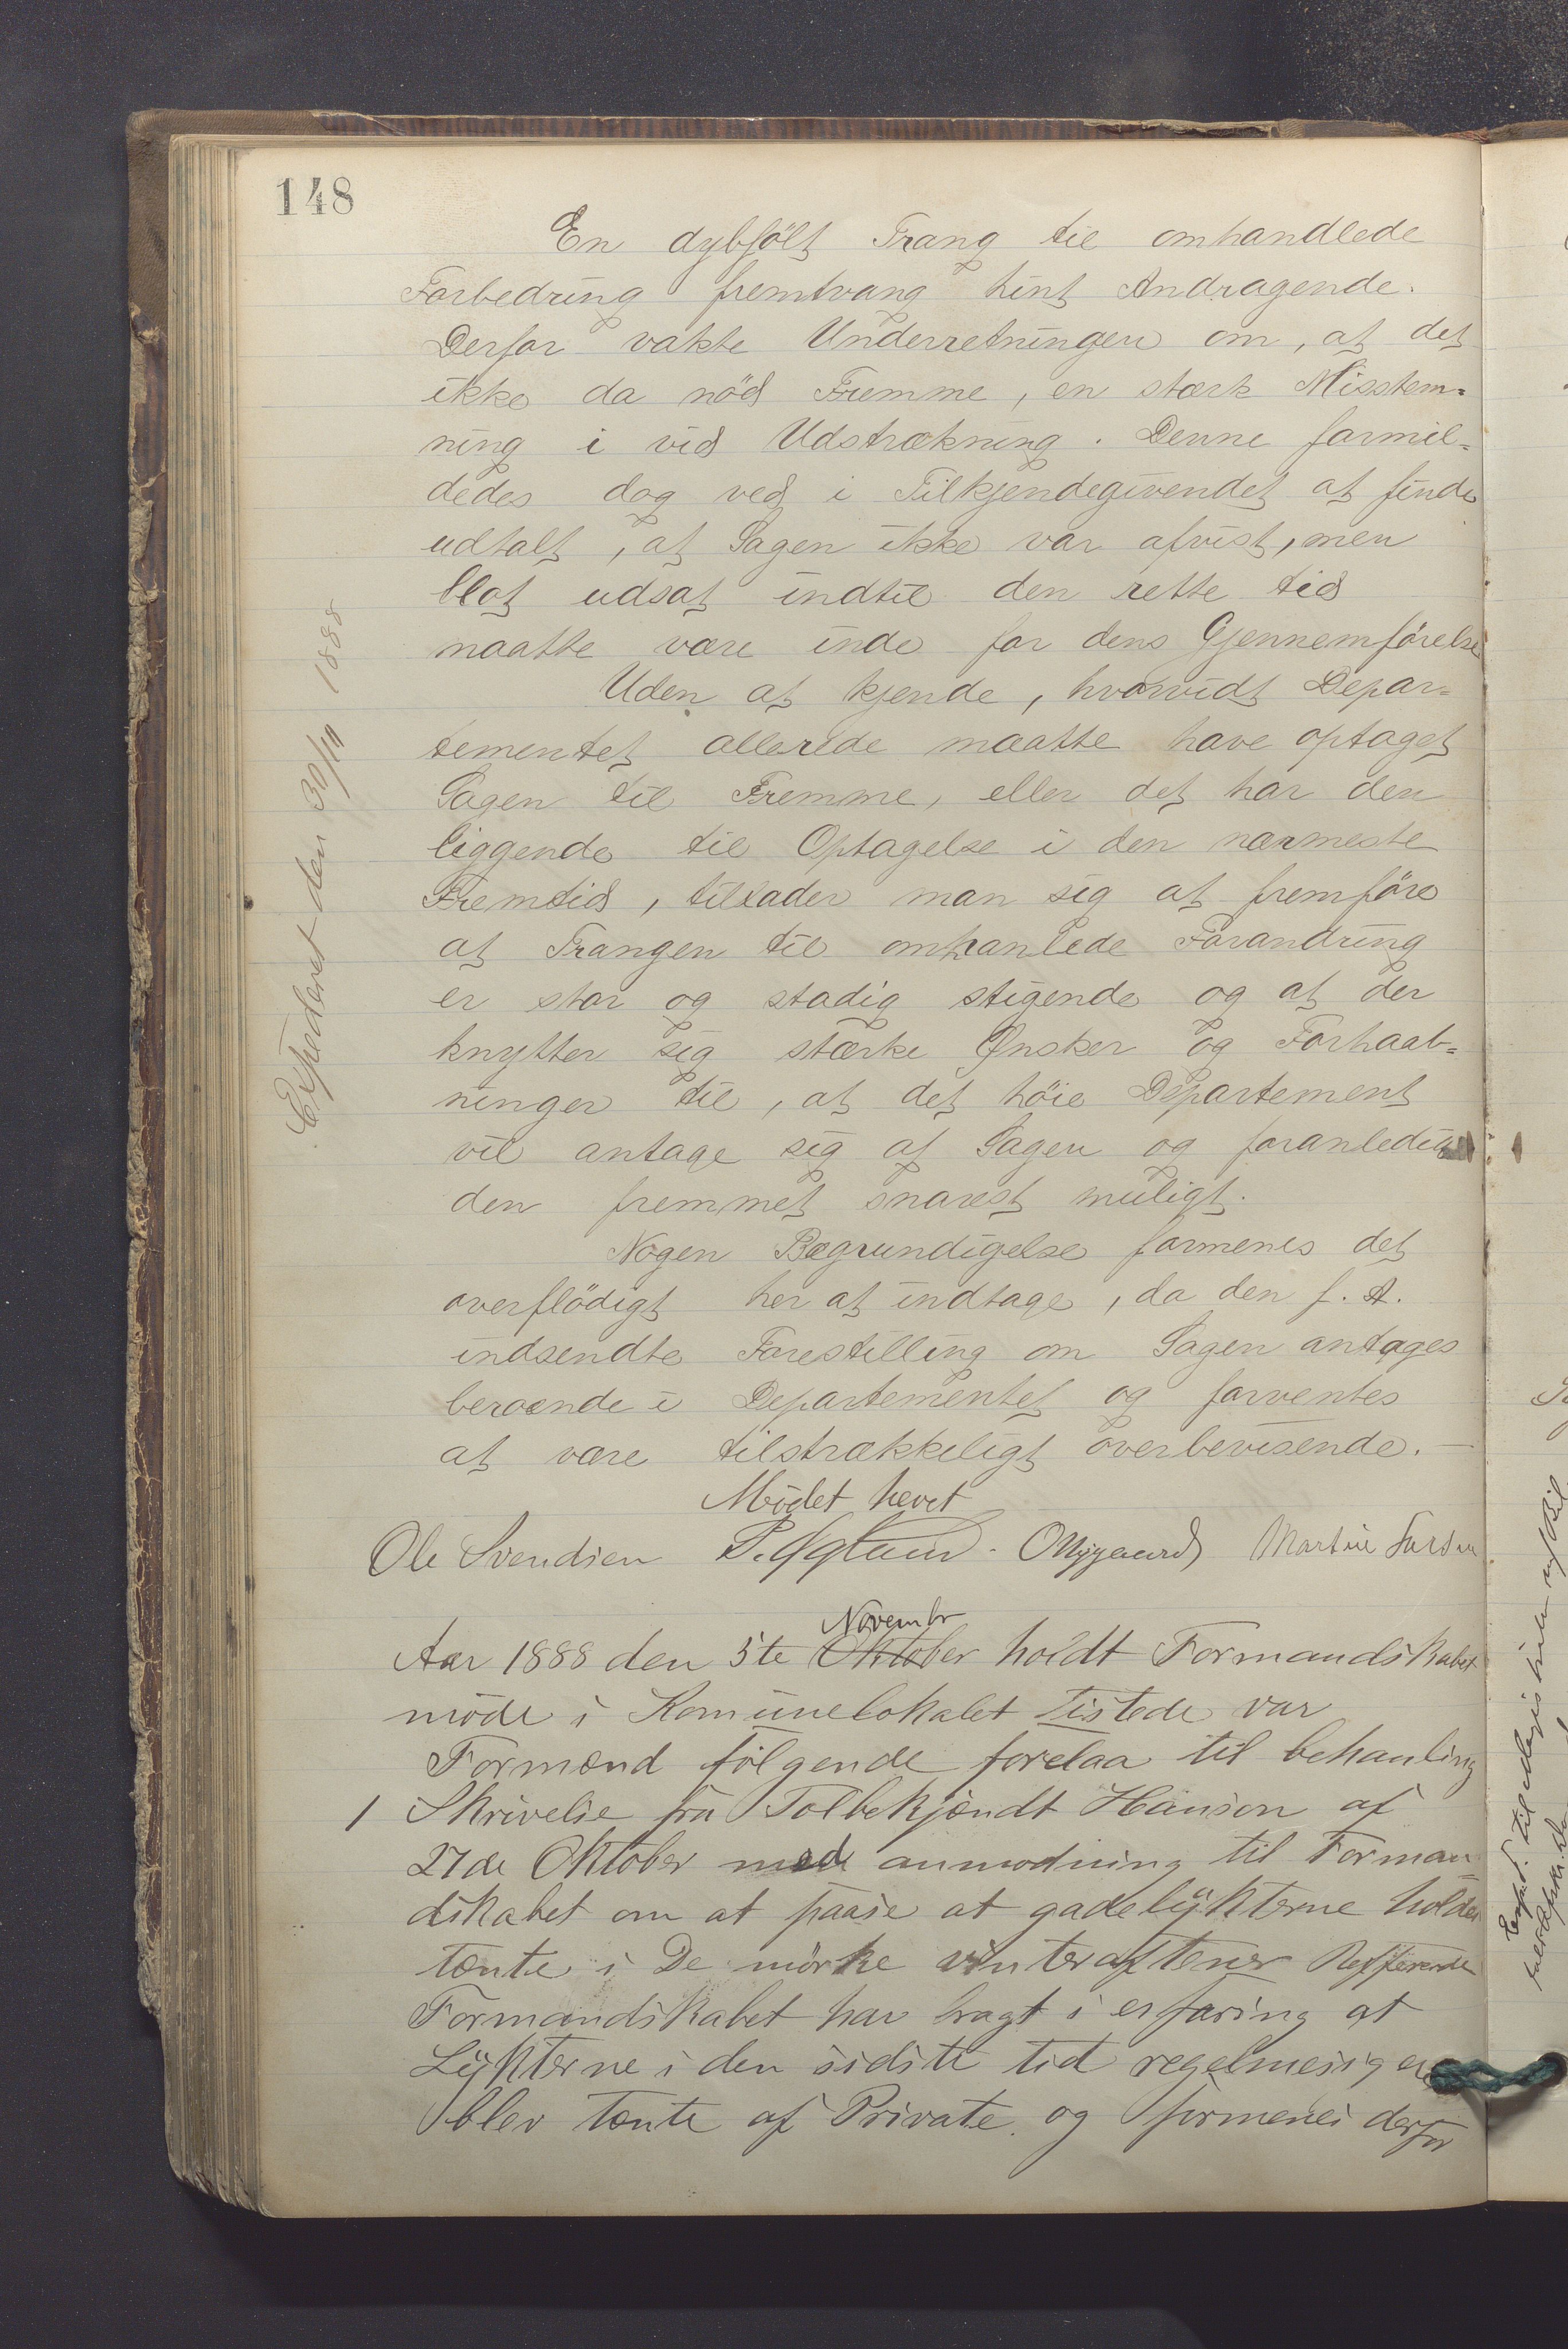 148
En dybfölt Trang til omhandlede
Forbedring fremtvang hint Andragende.
Derfor vakte Underretningen om, at det
ikke da nöd Fremme, en stærk Misstem-
ning i vid Udstrækning. Denne formil-
dedes dog ved i Tilkjendegivendet at finde
udtalt, at Sagen ikke var afvist, men
blot udsat indtil den rette tid
maatte være inde for dens Gjennemförelse
Uden at kjende, hvorvidt Depar-
tementet allerede maatte have optaget
Sagen til Fremme, eller det har den
liggende til Optagelse i den nærmeste
Fremtid, tillader man sig at fremföre
at Trangen til omhanlede Forandring
er stor og stadig stigende og at der
knytter sig stærke Ønsker og Forhaab-
ninger til, at det höie Departement
vil antage sig af Sagen og foranledige
den fremmet snarest muligt.
Nogen Begrundigelse formenes det
overflödigt her at indtage, da den f. A.
indsendte Forestilling om Sagen antages
beroende i Departementet og forventes
at være tilstrækkeligt overbevisende.—
Mödet hevet
Ole Svendsen P. Egeland. O Nygaard Martin
Expederet den 30/10 1888
Novembr
Aar 1888 den 5te Oktober holdt Formandskabet
möde i Komünelokalet tistede var
Formænd fölgende forelaa til behanling
1 Skrivelse fra Tolbekjændt Hanson af
27de Oktober med anmodning til Forman-
dskabet om at paase at gadelÿkterne holdes
tænte i De mörke vinteraftener Refererende
Formandskabet har bragt i erfaring at
Lÿkterne i den sidste tid regelmesig er
blev tænte af Private og formenes derfor